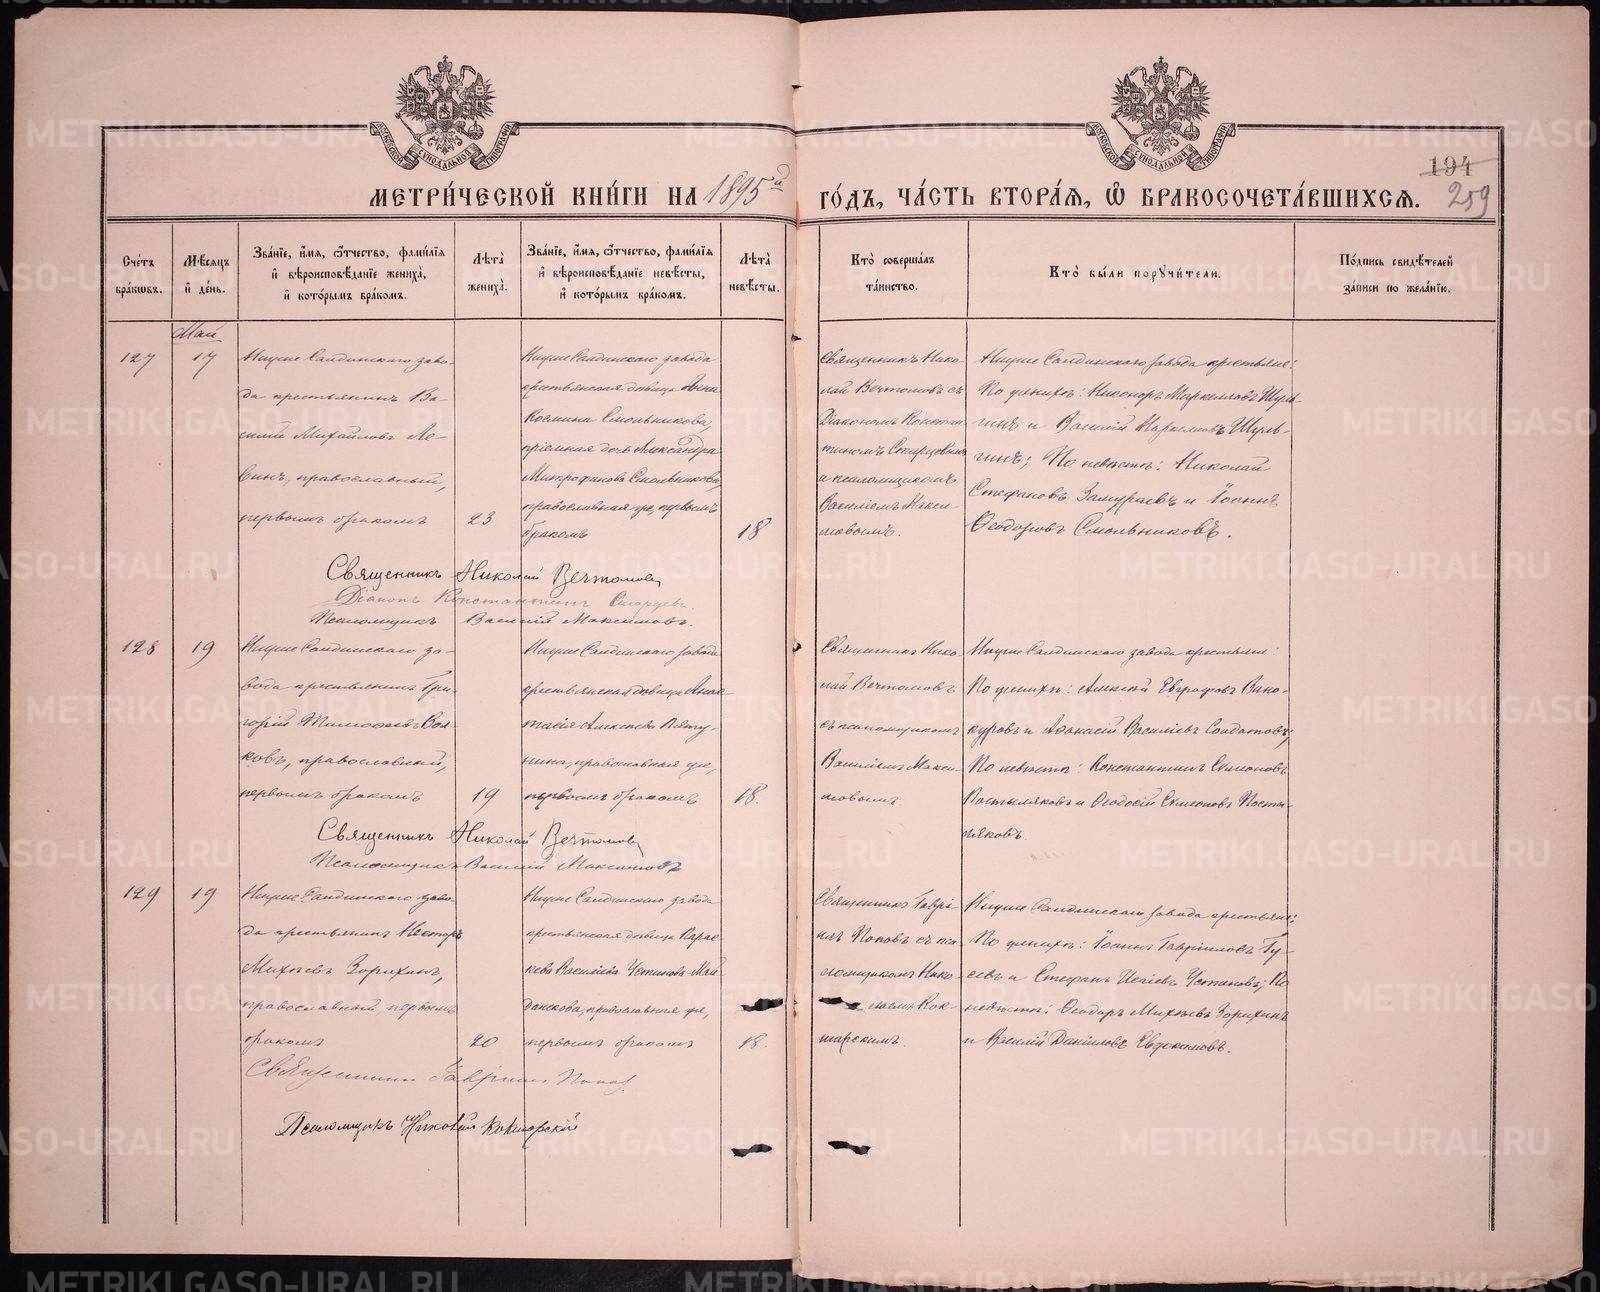 МЕТРИ́ЧЕСКОЙ КНИ́ГИ НА 1895й ГО́ДЪ, ЧА́СТЬ ВТОРА́Я, Ѡ БРАКОСОЧЕТА́ВШИХСЯ.
194
259
Сче́тъ бра́кѡвъ.
Мѣ́сяцъ и де́нь.
Зва́нїе, и́мя, ѻ́тчество, фами́лїя и вѣроисповѣ́данїе жениха̀, и кото́рымъ бра́комъ.
Лѣ́та жениха̀.
Зва́нїе, и́мя, ѻ́тчество, фами́лїя и вѣроисповѣ́данїе невѣ́сты, и кото́рымъ бра́комъ.
Лѣ́та невѣ́сты.
Кто̀ соверша́лъ та́инство.
Кто̀ бы́ли порꙋчи́тели.
По́дпись свидѣ́телей за́писи по жела́нїю.
Май
127
17
Нижне Салдинскаго заво-
да крестьянинъ Ва-
силий Михайловъ Ле-
винъ, православный,
первымъ бракомъ
23
Нижне Салдинскаго завода
крестьянская дѣвица Анна
Козмина Смольникова,
приемная дочь Александра
Митрофанова Смольникова,
православная же, первымъ
бракомъ
18
Священникъ Нико-
лай Вечтомовъ съ
Діакономъ Констан-
тиномъ Старцевымъ
и псаломщикомъ
Василіемъ Макси-
мовымъ.
Нижне Салдинскаго завода крестьяне:
По женихѣ: Никоноръ Маркелловъ Шуль-
гинъ и Василій Маркелловъ Шуль-
гинъ; По невѣстѣ: Николай
Стефановъ Замураевъ и Іоаннъ
Ѳеодоровъ Смольниковъ.
Священникъ Николай Вечтомовъ
Діаконъ Константинъ Старцевъ.
Псаломщикъ Василій Максимовъ.
128
19
Нижне Салдинскаго за-
вода крестьянинъ Гри-
горій Тимофеевъ Вол-
ковъ, православный,
первымъ бракомъ
19
Нижне Салдинскаго завода
крестьянская дѣвица Анас-
тасія Алексѣева
православная же,
первымъ бракомъ
18.
Священникъ Нико-
лай Вечтомовъ
съ псаломщикомъ
Василіемъ Макси-
мовымъ
Нижне Салдинскаго завода крестьяне:
По женихѣ: Алексѣй Евграфовъ Вино-
куровъ и Аѳанасій Василіевъ Солдатовъ;
По невѣстѣ: Константинъ Симеоновъ
Постыляковъ и Ѳеодосій Симеоновъ Посты-
ляковъ
Священникъ Николай Вечтомовъ
Псаломщикъ Василій Максимовъ
129
19
Нижне Салдинскаго заво-
да крестьянинъ Несторъ
Михѣевъ Зорихинъ,
православный, первымъ
бракомъ
20
Нижне Салдинскаго завода
крестьянская дѣвица Парас-
кева Василіева Устинова-Май-
данскова, православная же,
первымъ бракомъ
18.
Священникъ Гаврі-
илъ Поповъ съ пса-
ломщикомъ Нико-
лаемъ Кок-
шарскимъ
Нижне Салдинскаго завода крестьяне:
По женихѣ: Іоаннъ Гавріиловъ Гу-
севъ и Стефанъ Исаіевъ Устиновъ; По
невѣстѣ: Ѳеодоръ Михѣевъ Зорихинъ
и Василій Даніиловъ Евдокимовъ.
Священникъ Гавріилъ Поповъ
Псаломщикъ Николай Кокшарскій
METRIKI.GASO-URAL.RU